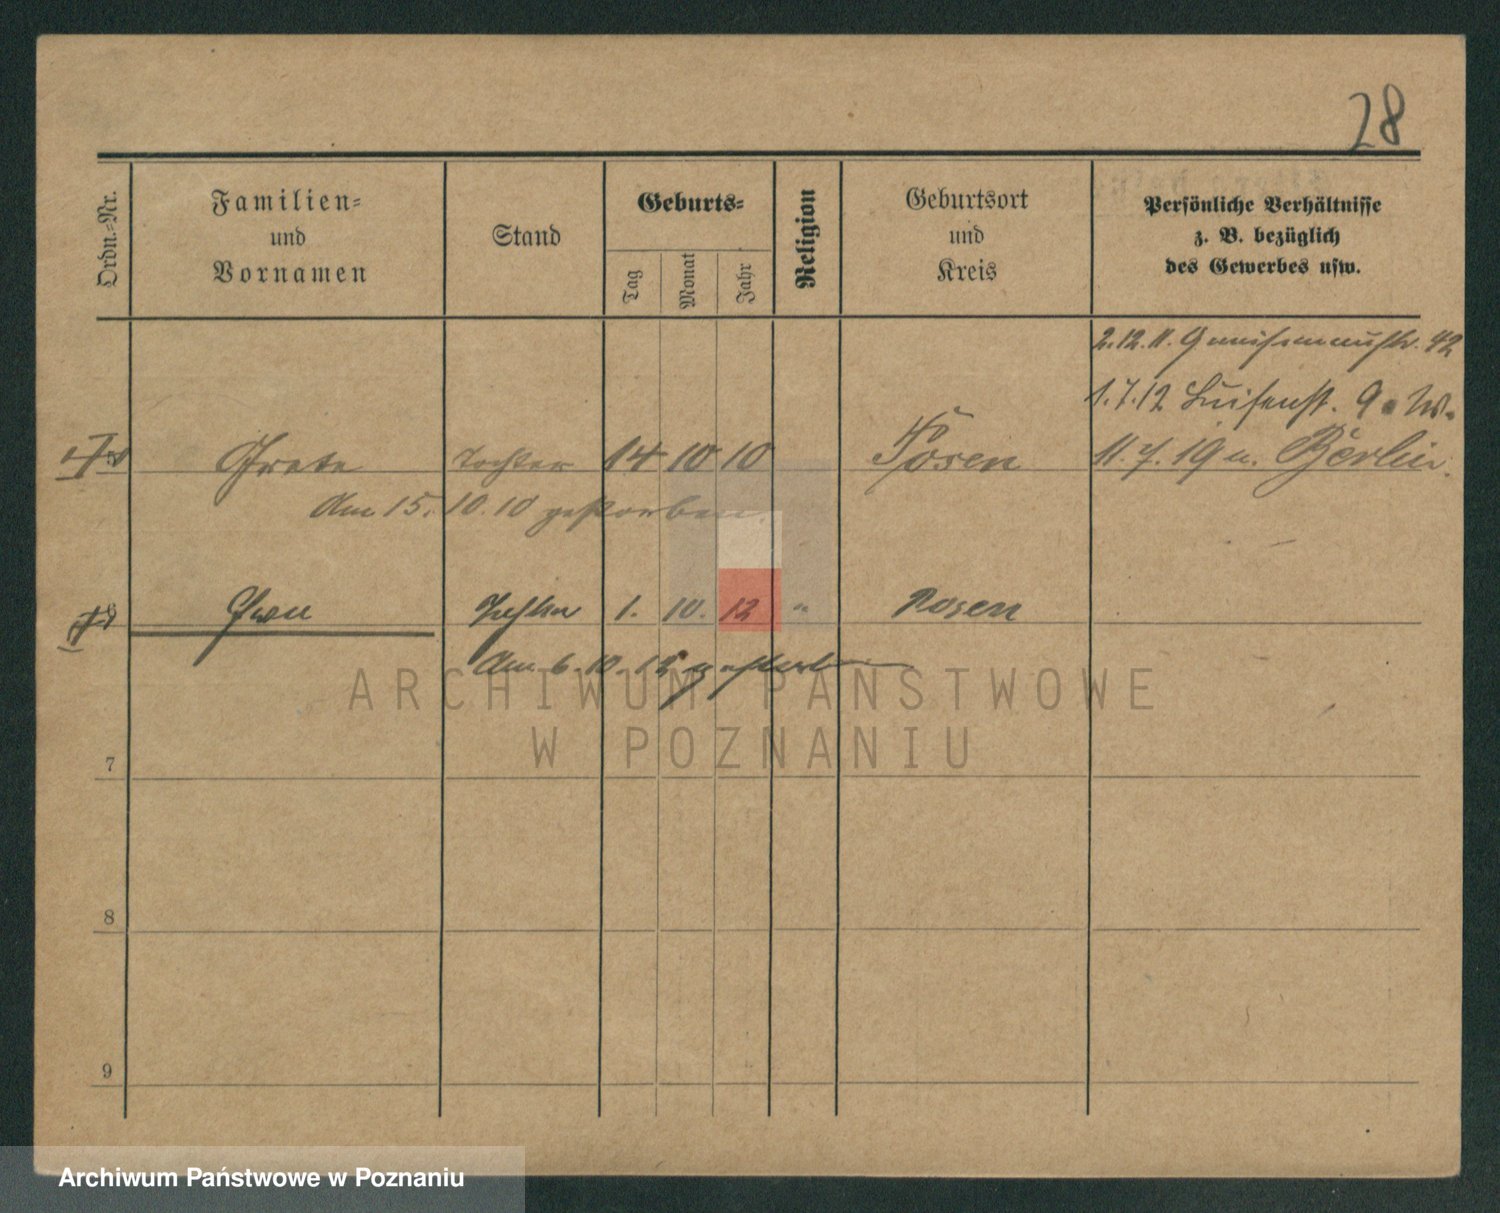 28
Ordn.-Nr.
Familien-
und
Vornamen
Stand
Geburts-
Tag
Monat
Jahr
Religion
Geburtsort
und
Kreis
Persönliche Verhältnisse
z. B. bezüglich
des Gewerbes usw.
2.12.11. Gneisenaustr. 42
1.7.12 Luisenst. 9
5 Grete Tochter 14 10 10 Posen 11.7.19 n. Berlin.
Am 15. 10. 10 gestorben.
6 Tochter 1. 10. 12 " Posen
Am 6. 10. 12 gestorben
ARCHIWUM PAŃSTWOWE
W POZNANIU
7
8
9
Archiwum Państwowe w Poznaniu